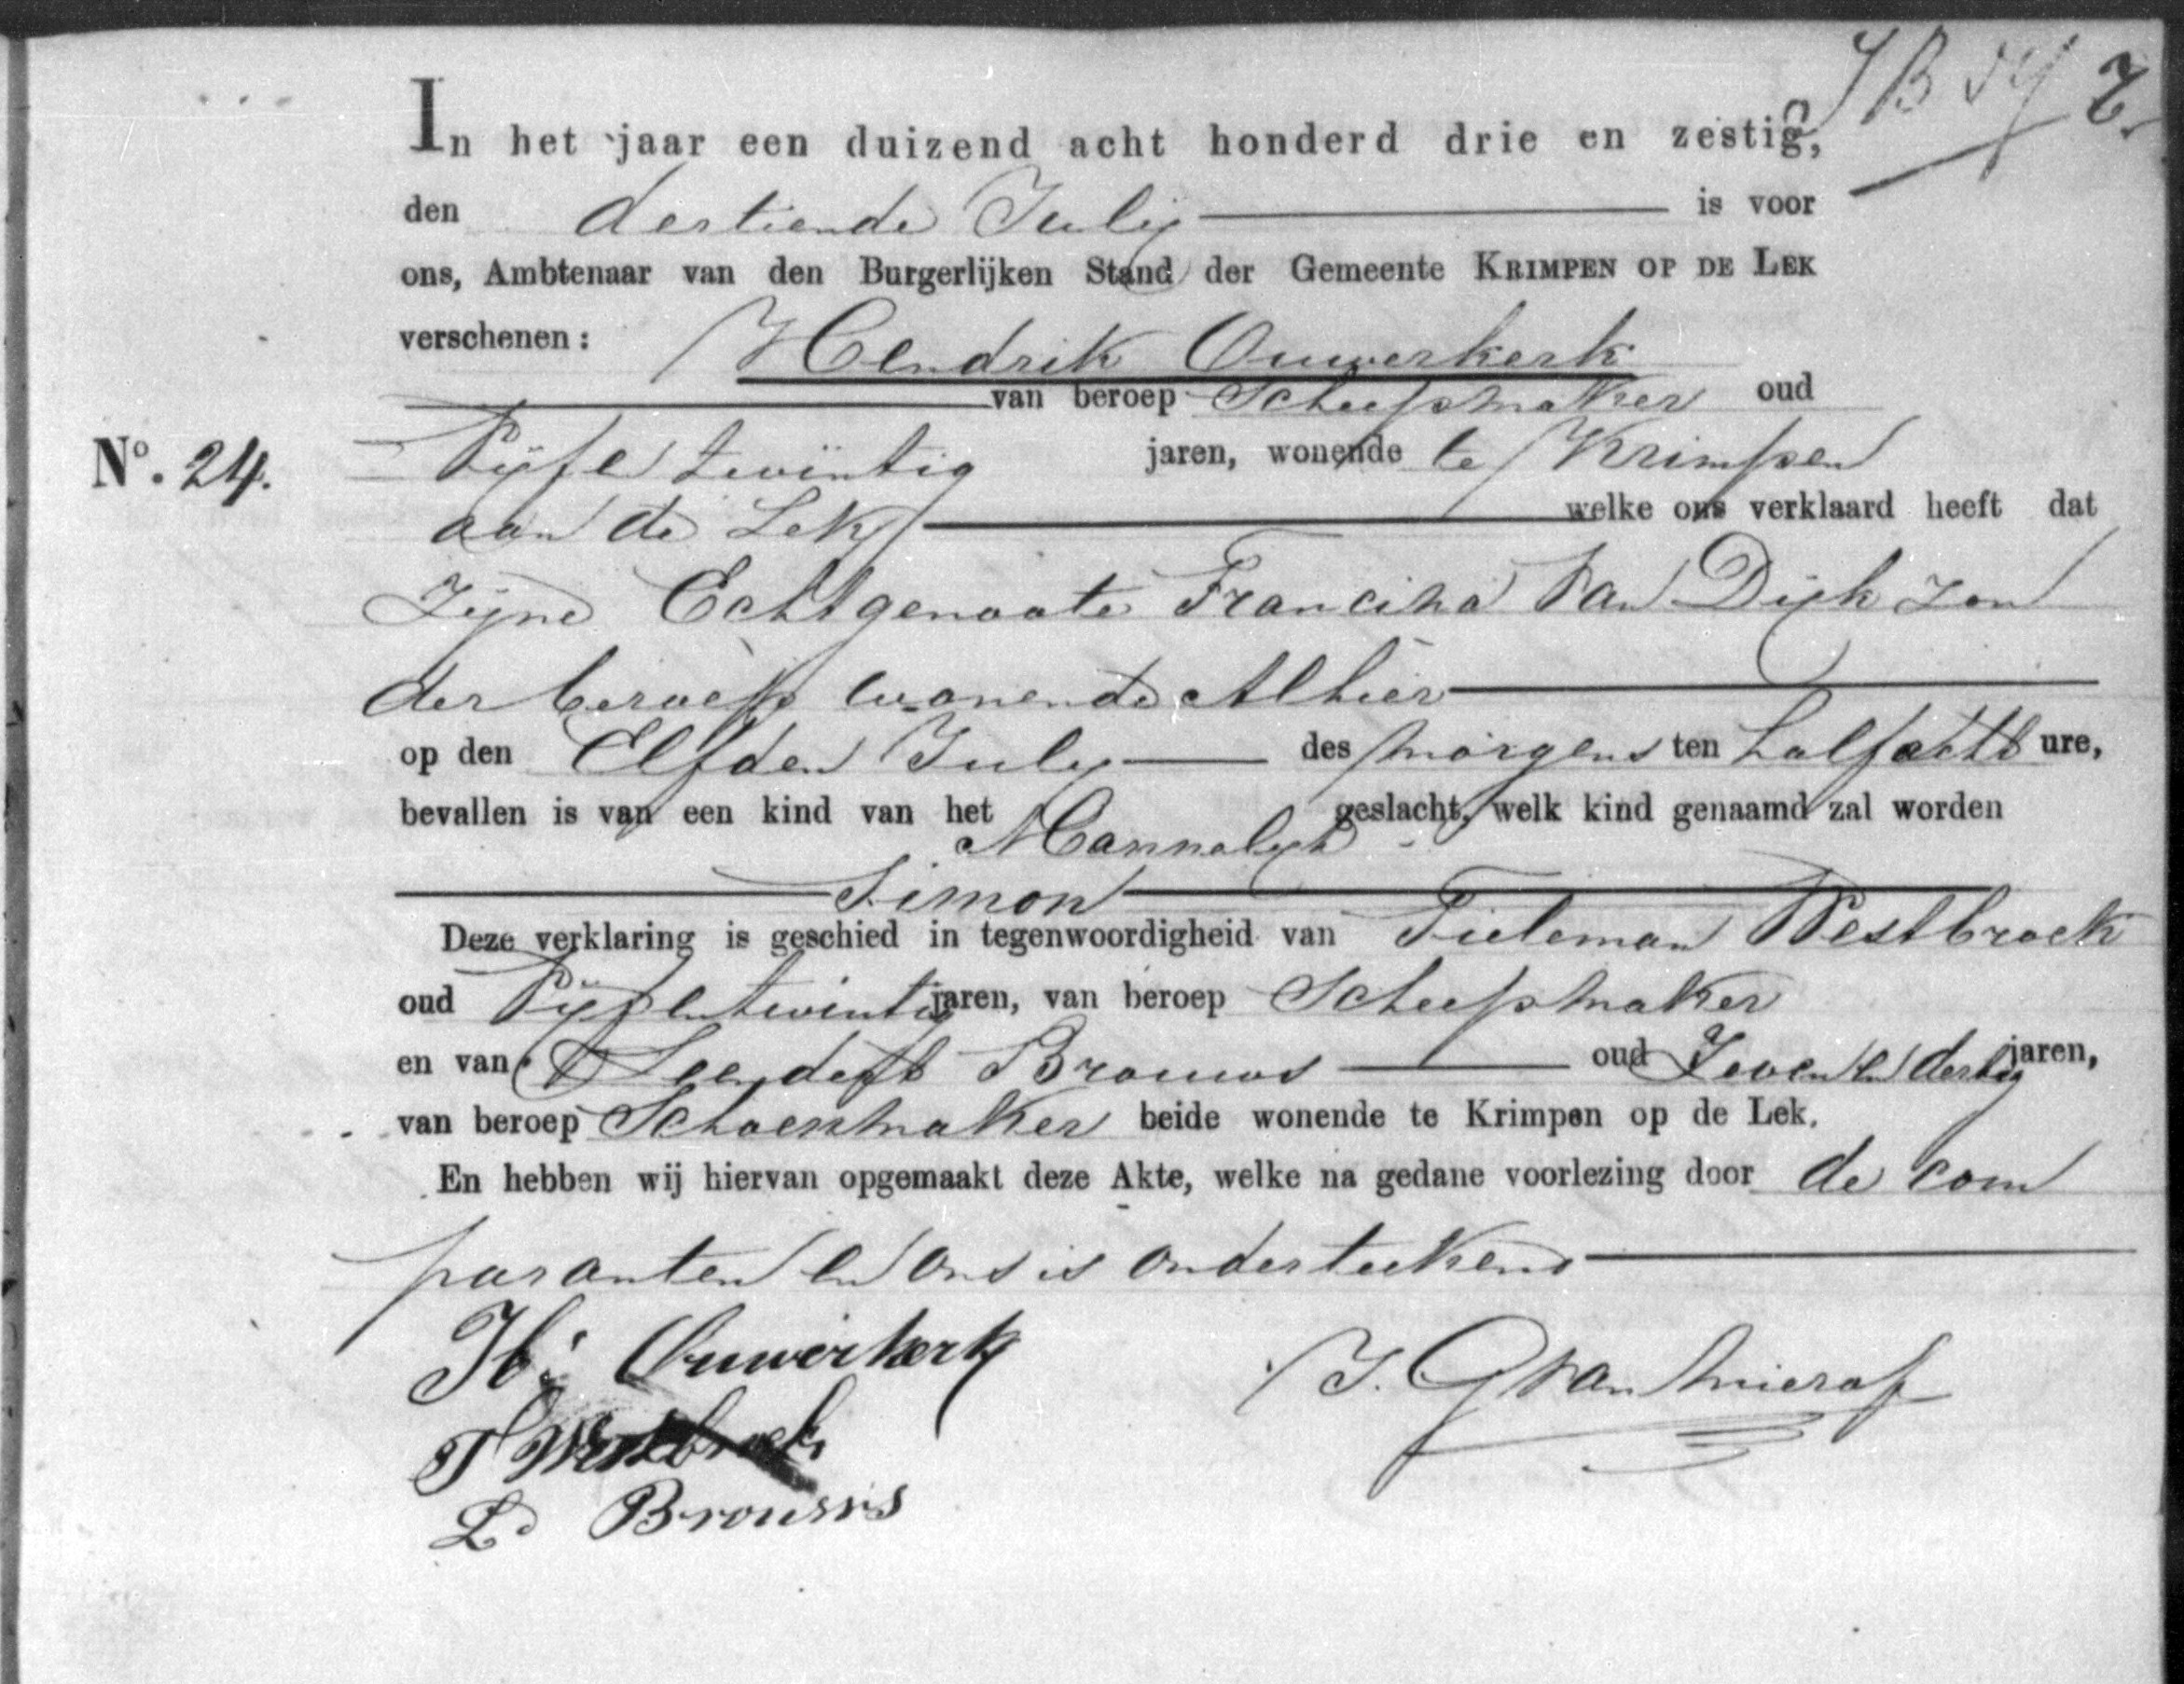 In het jaar een duizend acht honderd drie en zestig,
den dertiende July is voor
ons, Ambtenaar van den Burgerlijken Stand der Gemeente KRIMPEN OP DE LEK
verschenen: Hendrik Ouwerkerk
van beroep Scheepsmaker oud
Nº. 24. Vyf en twintig jaren, wonende te Krimpen
aan de Lek welke ons verklaard heeft dat
Zyne Echtgenoote Francina Van Dijk zon
der beroep wonende Alhier
op den Elfden July des morgens ten half acht ure,
bevallen is van een kind van het Mannelyk geslacht, welk kind genaamd zal worden
Simon
Deze verklaring is geschied in tegenwoordigheid van Tieleman Westbroek
oud Vyf en twintig jaren, van beroep Scheepsmaker
en van Leendert Brouws oud Zeven en dertig jaren,
van beroep Schoenmaker beide wonende te Krimpen op de Lek.
En hebben wij hiervan opgemaakt deze Akte, welke na gedane voorlezing door de com
paranten en ons is onderteekend
H: Ouwerkerk
T Westbroek
L Brouws